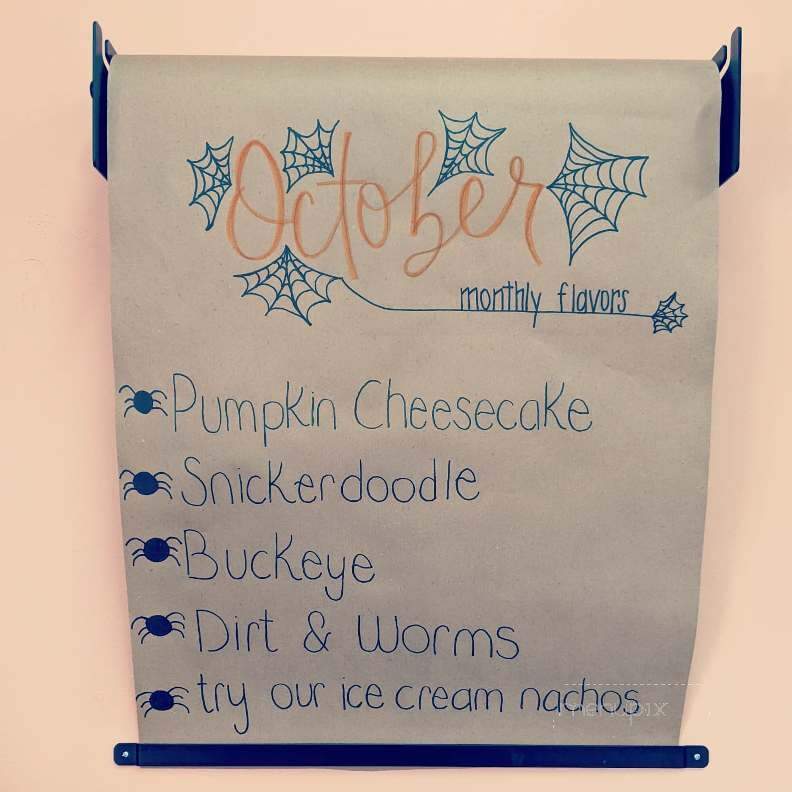 October
monthly flavors
Pumpkin Cheesecake
Snickerdoodle
Buckeye
Dirt & Worms
try our ice cream nachos
menupix